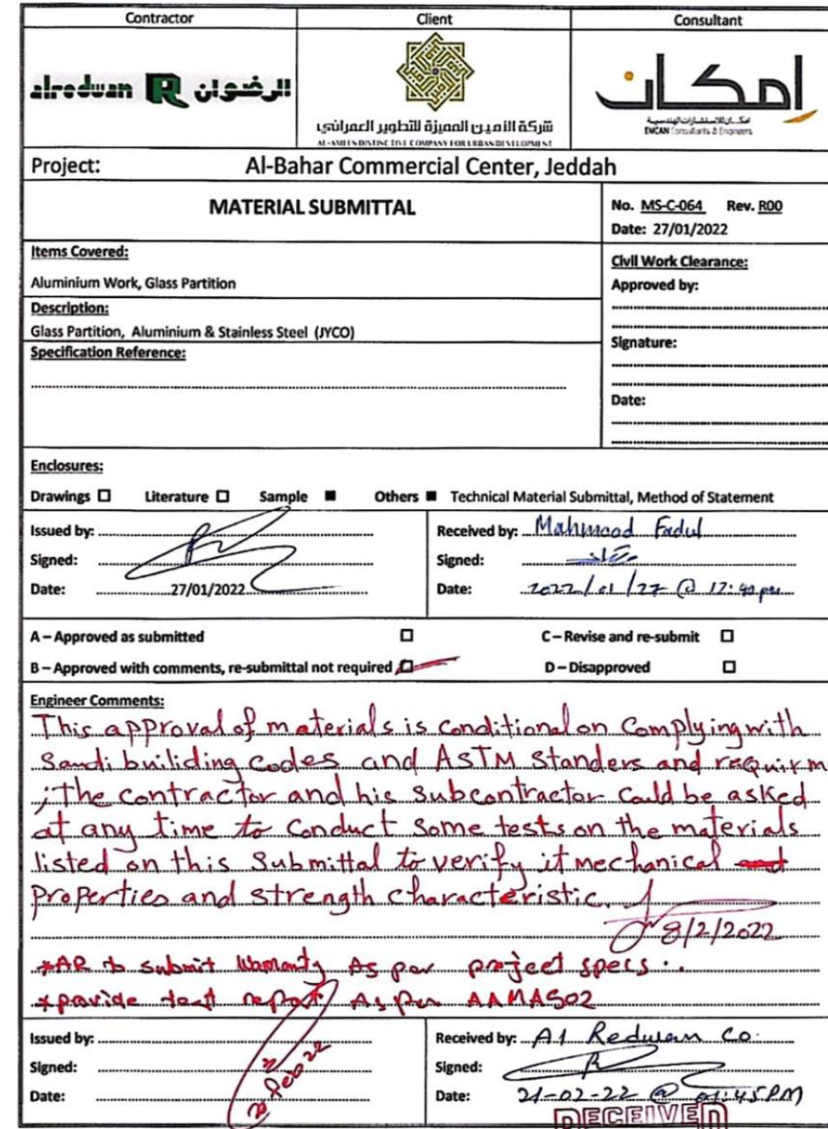 Contractor
Client
Consultant
alredwan R الرضوان
شركة الأمين المميزة للتطوير العمراني
AL-AMEEN DISTINCTIVE COMPANY FOR URBAN DEVELOPMENT
امكان
امكان للاستشارات الهندسية
EMCAN Consultants & Engineers
Project: Al-Bahar Commercial Center, Jeddah
MATERIAL SUBMITTAL
No. MS-C-064 Rev. R00
Date: 27/01/2022
Items Covered:
Aluminium Work, Glass Partition
Description:
Glass Partition, Aluminium & Stainless Steel (JYCO)
Specification Reference:
Civil Work Clearance:
Approved by:
Signature:
Date:
Enclosures:
Drawings Literature Sample Others Technical Material Submittal, Method of Statement
Issued by:
Signed:
Date: 27/01/2022
Received by: Mahmood Fadul
Signed:
Date: 2022/01/27 @ 12:40 pm
A – Approved as submitted
C – Revise and re-submit
B – Approved with comments, re-submittal not required
D – Disapproved
Engineer Comments:
This approval of materials is conditional on Complying with
Saudi builiding codes and ASTM Standers and requirm
; The contractor and his subcontractor could be asked
at any time to Conduct some tests on the materials
listed on this Submittal to verify it mechanical
properties and strength characteristic.
8/2/2022
*AR to submit warranty As per project specs.
*provide test report As per AAMA502
Issued by:
Signed:
Date:
Feb 22
Received by: Al Redwan Co.
Signed:
Date: 21-02-22 @ 01:45 PM
RECEIVED